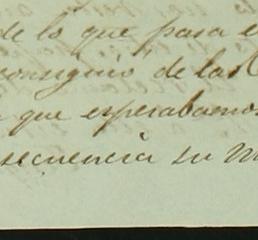 de lo que pasa e
consiguió de las
que esperabamos
secuencia su m